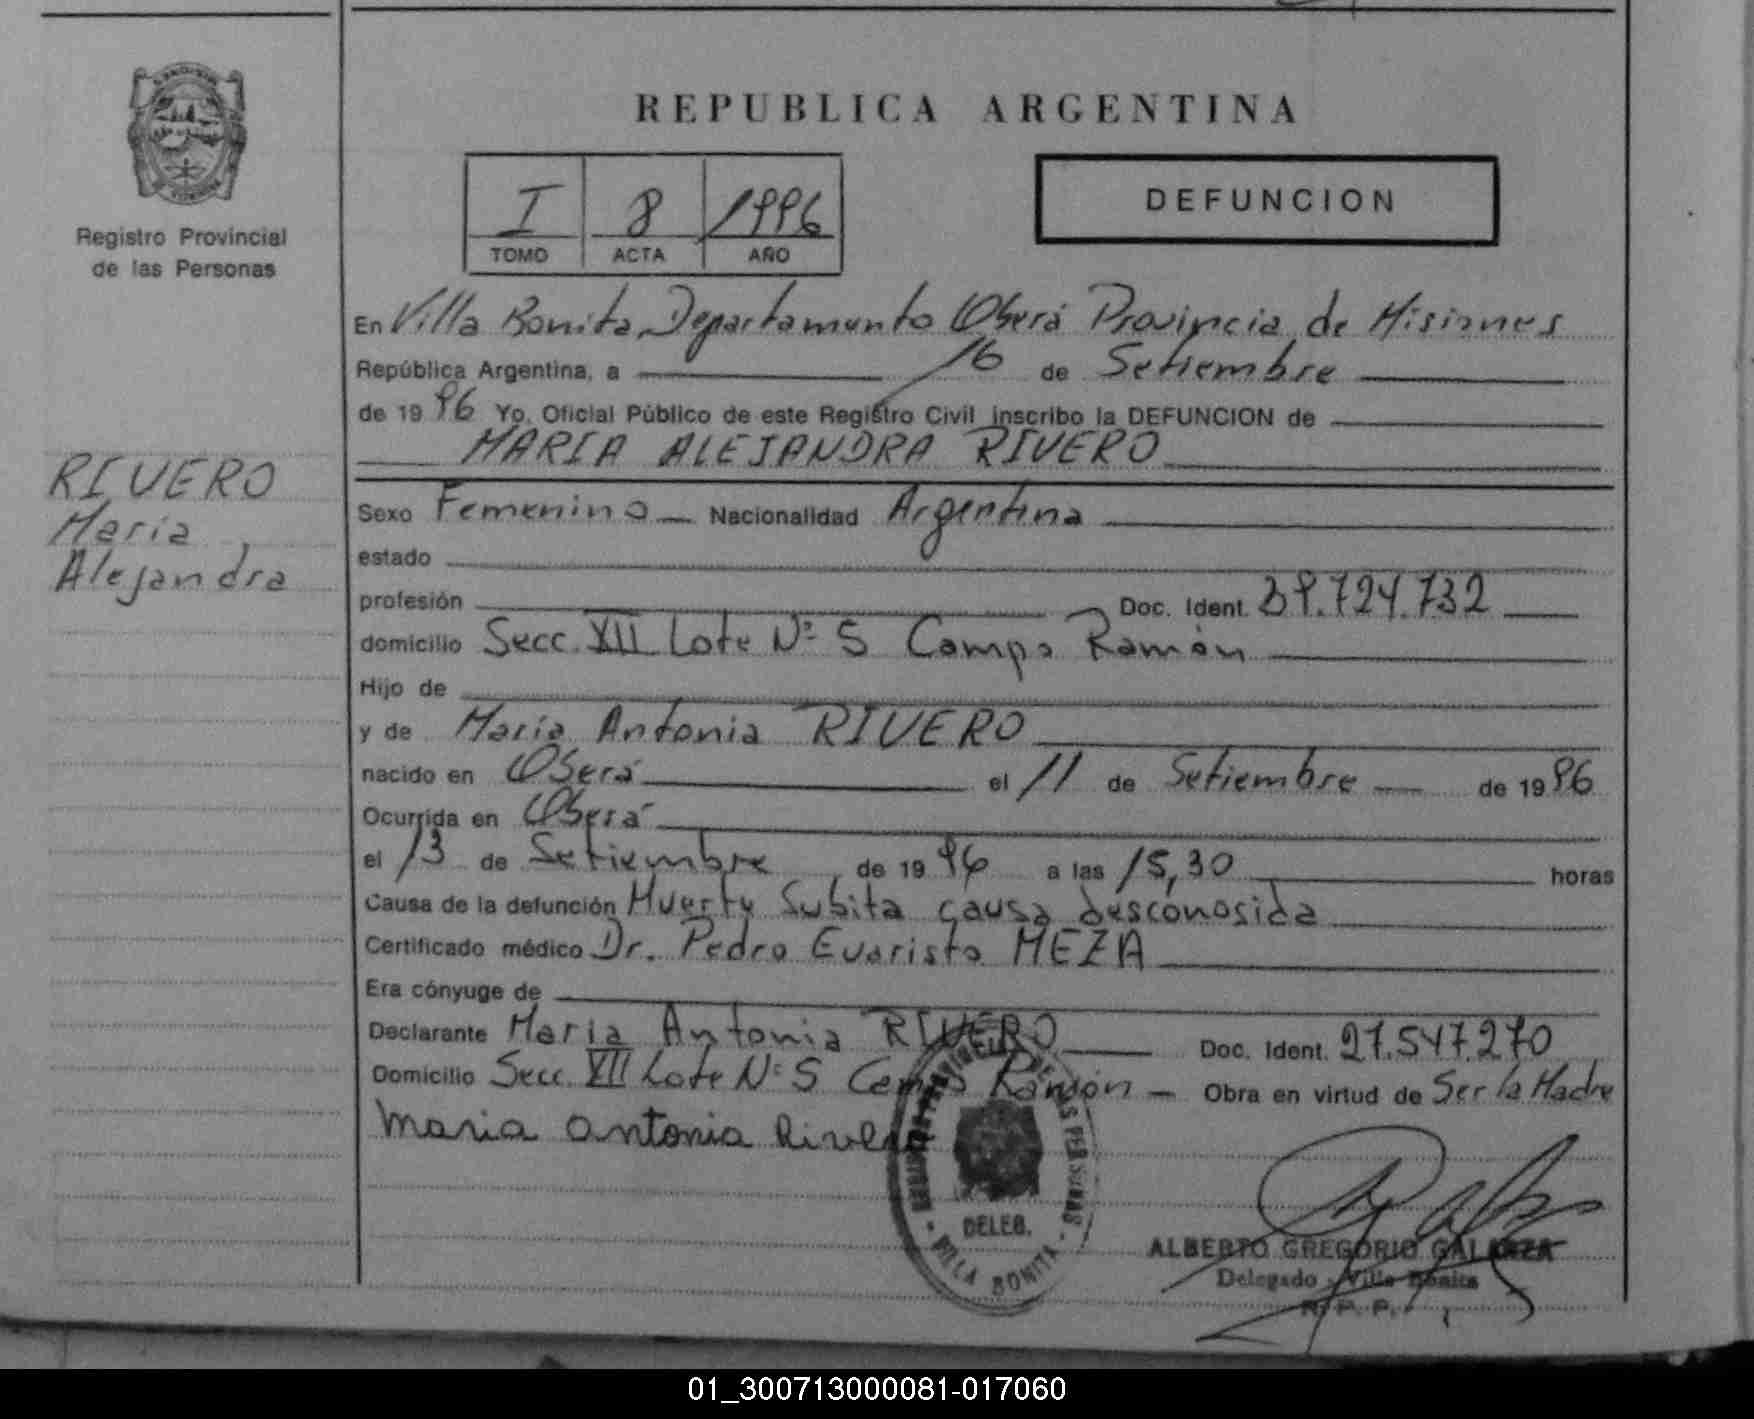 REPUBLICA ARGENTINA
I 8 1996
TOMO ACTA AÑO
DEFUNCION
Registro Provincial
de las Personas
En Villa Bonita Departamento Oberá Provincia de Misiones
República Argentina, a 16 de Setiembre
de 1996 Yo, Oficial Público de este Registro Civil inscribo la DEFUNCION de
MARIA ALEJANDRA RIVERO
RIVERO
Maria
Alejandra
Sexo Femenino Nacionalidad Argentina
estado
profesión Doc. Ident. 39.724.732
domicilio Secc. XII Lote Nº 5 Campo Ramón
Hijo de
y de Maria Antonia RIVERO
nacido en Oberá el 11 de Setiembre de 1996
Ocurrida en Oberá
el 13 de Setiembre de 1996 a las 15,30 horas
Causa de la defunción Muerte Subita causa desconosida
Certificado médico Dr. Pedro Evaristo MEZA
Era cónyuge de
Declarante Maria Antonia RIVERO Doc. Ident. 27.547.270
Domicilio Secc. XII Lote Nº 5 Campo Ramón Obra en virtud de Ser la Madre
Maria Antonia Rivero
REGISTRO PROVINCIAL DE LAS PERSONAS
DELEG.
VILLA BONITA
ALBERTO GREGORIO GALARZA
Delegado Villa Bonita
R. P. P.
01_300713000081-017060